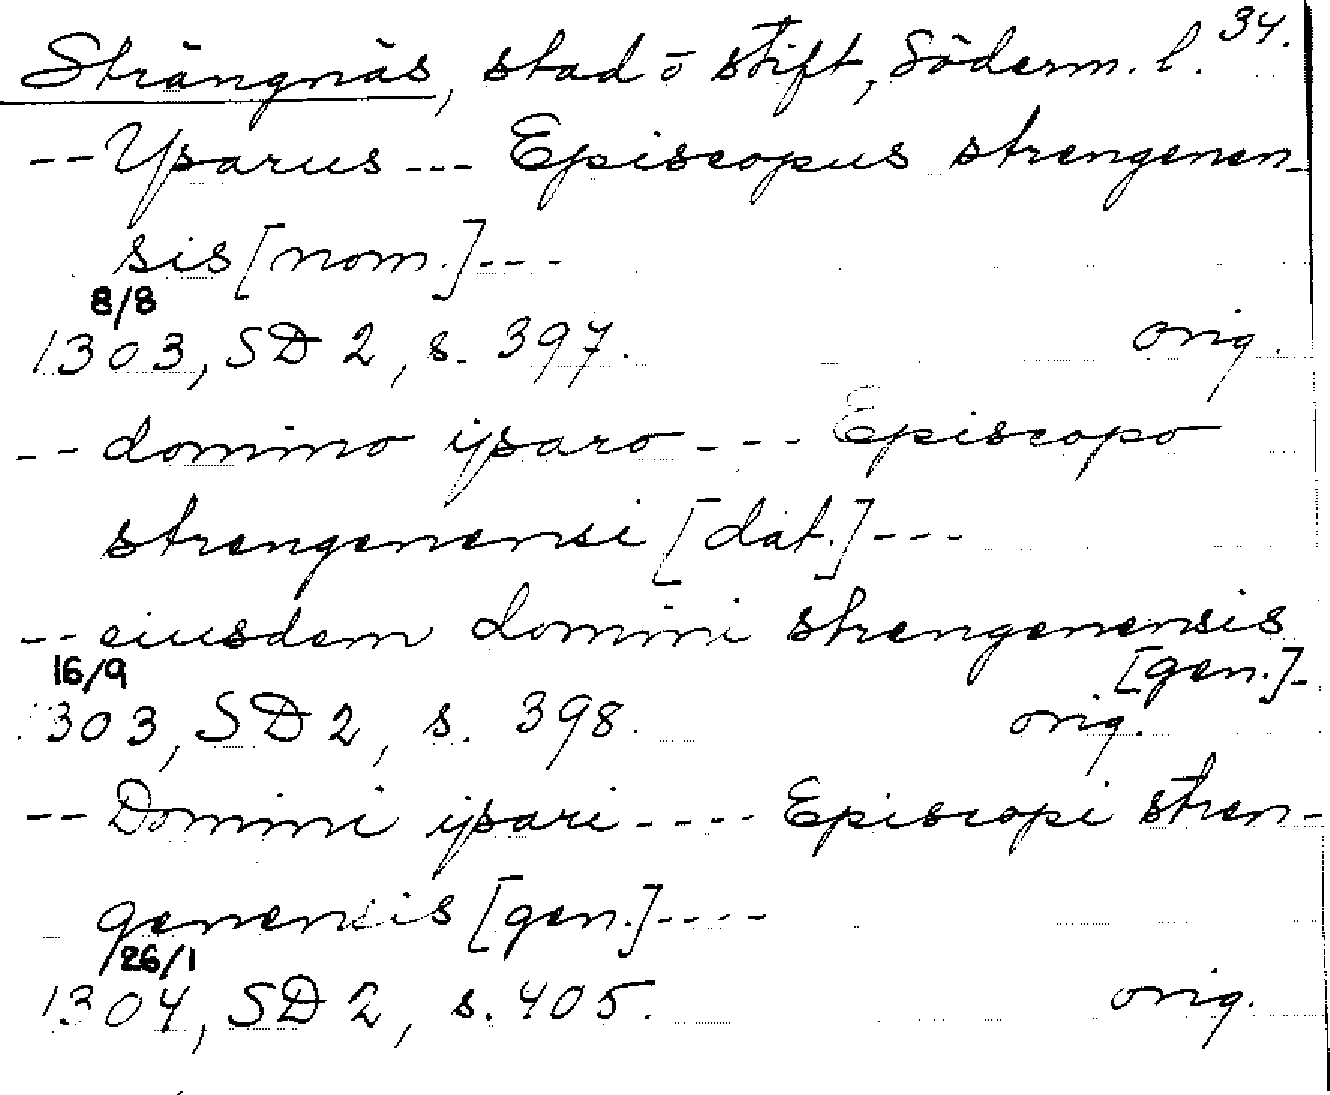 34.
Strängnäs, stad o stift, Söderm. l.
-- Ysarus --- Episcopus strengenen-
sis [nom.] ---
8/8
1303, SD 2, s. 397. orig.
-- domino ysaro --- Episcopo
strengenensi [dat.] ---
-- eiusdem domini strengenensis
16/9 [gen.]-
1303, SD 2, s. 398. orig.
-- Domini ysari ---- Episcopi stren-
genensis [gen.] ----
26/1
1304, SD 2, s. 405. orig.